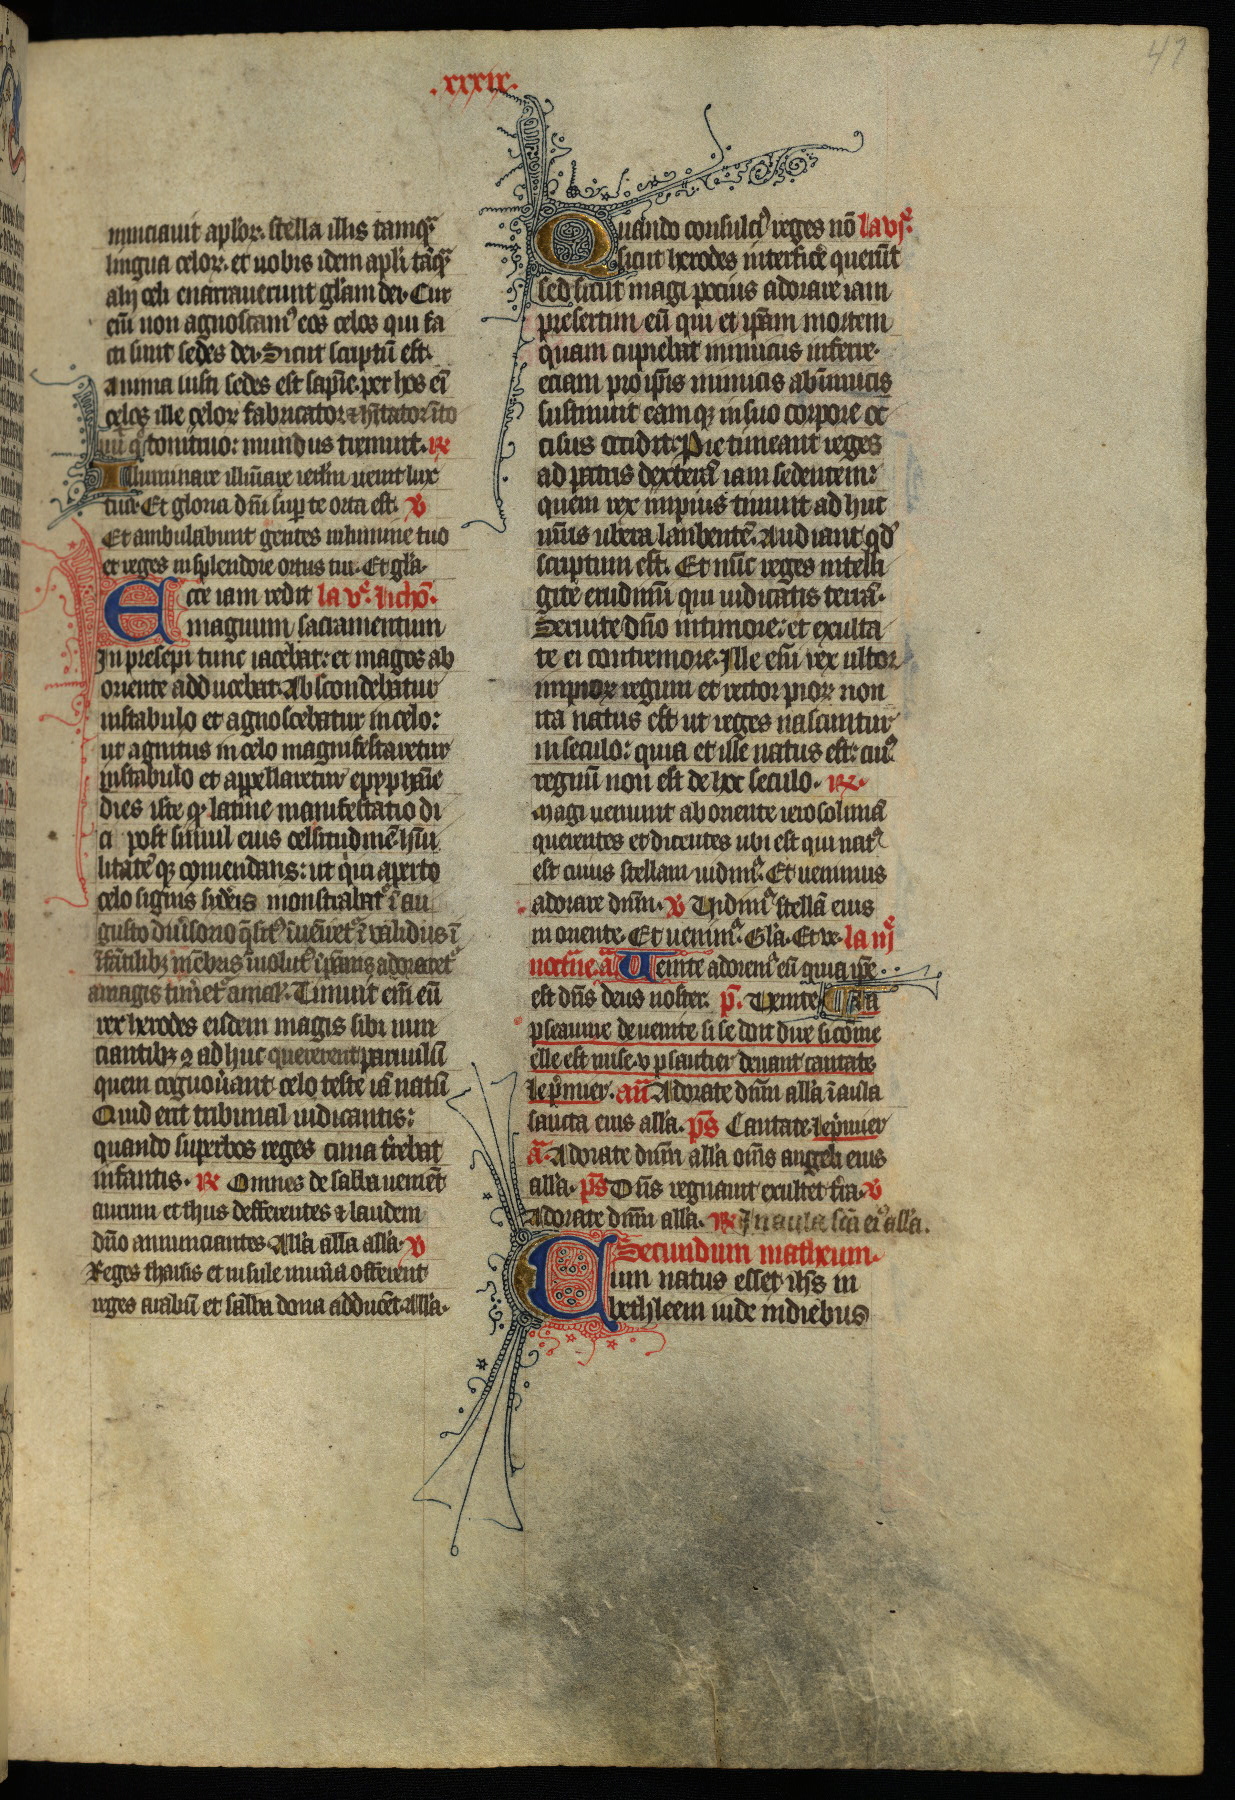 47
.xxxix.
nunciavit apl'oꝝ. stella illis tamqᵃ
lingua celoꝝ. et uobis idem apli tāqᵃ
alij celi enarrauerunt gl'am dei. Cur
eni non agnoscamꝰ eos celos qui fa
cti sunt sedes dei. Sicut scriptū est.
Anima iusti sedes est sapīe. per hos eī
celos ille celoꝝ fabricator
mundus tremuit. ℟
Illuminare illūare ierl'm uenit lux
tua. Et gloria dn̄i sup te orta est. v
Et ambulabunt gentes in lumine tuo
et reges in splendore ortus tui. Et gl'a.
Ecce iam redit la vᵉ. lichō.
magnum sacramentum
In presepi tunc iacebat: et magos ab
oriente adducebat. Abscondebatur
in stabulo et agnoscebatur in celo:
ut agnitus in celo magnifestaretur
in stabulo et appellaretur epyphāie
dies iste qꝫ latine manifestatio di
ci post simul eius celsitudinē hūi
litatēqꝫ comendans: ut qui aperto
celo signis sideris monstrabatᵉ ī an
gusto diu'sorio q̄situs īuēiretᵉ ī validus ī
īfātilibꝫ mēbris īuolutᵉ ī pannis adoraretᵉ
a magis timeretᵉ a malis. Timuit em̄ eū
rex herodes eisdem magis sibi nun
ciantibꝫ ⁊ adhuc quererent paruulū
quem cognouāt celo teste iā natū
Quid erit tribunal iudicantis:
quando superbos reges cuna t'rebat
infantis. ℟ Omnes de salba uenient
aurum et thus defferentes ⁊ laudem
dn̄o annunciantes. All'a all'a all'a. v
Reges tharsis et insule mun'a offerent
reges arabū et salba dona adducēt. All'a.
Quando consulcꝰ reges nō la vjᵉ.
sicut herodes interfic'e querūt
sed sicut magi pocius adorare iam
presertim eū qui et ip̄am mortem
quam cupiebat inimicus inferre.
eciam pro ip̄is inimicis ab inimicis
sustinuit eamqꝫ in suo corpore oc
cisus occidit. Pie timeant reges
ad patris dexterā iam sedentem:
quem rex impius timuit adhuc
mr̄is ubera lambentē. Audiant qd'
scriptum est. Et nūc reges intelli
gite erudimī qui iudicatis terrā.
Seruite dn̄o in timore: et exulta
te ei contremore. Ille em̄ rex ultor
impioꝝ regum et rector pioꝝ non
ita natus est ut reges nascuntur
in seculo: quia et ille natus est: cuiᵒ
regnū non est de hoc seculo. ℟.
Magi ueniunt ab oriente ierosolimā
querentes et dicentes ubi est qui natᵒ
est cuius stellam uidimᵒ. Et uenimus
adorare dn̄m. v Uidimᵒ stellā eius
in oriente. Et uenimᵒ. Gl'a. Et ve. la iijᵉ
noctūe. ā Uenite adoremᵒ eū quia ip̄e
est dn̄s deus noster. p̄. Uenite. La
pseaume de uenite si se doit dire si cōme
elle est mise v psautier deuant cantate
le p'mier. an̄ Adorate dn̄m all'a ī aula
sancta eius all'a. p̄s Cantate le p'mier
ā. Adorate dn̄m all'a om̄s angeli eius
all'a. p̄s Dn̄s regnauit exultet t'ra. v
Adorate dn̄m all'a. ℟ In aula sc̄a eiᵒ all'a.
Secundum matheum.
Cum natus esset ih̄s in
bethleem iude in diebus